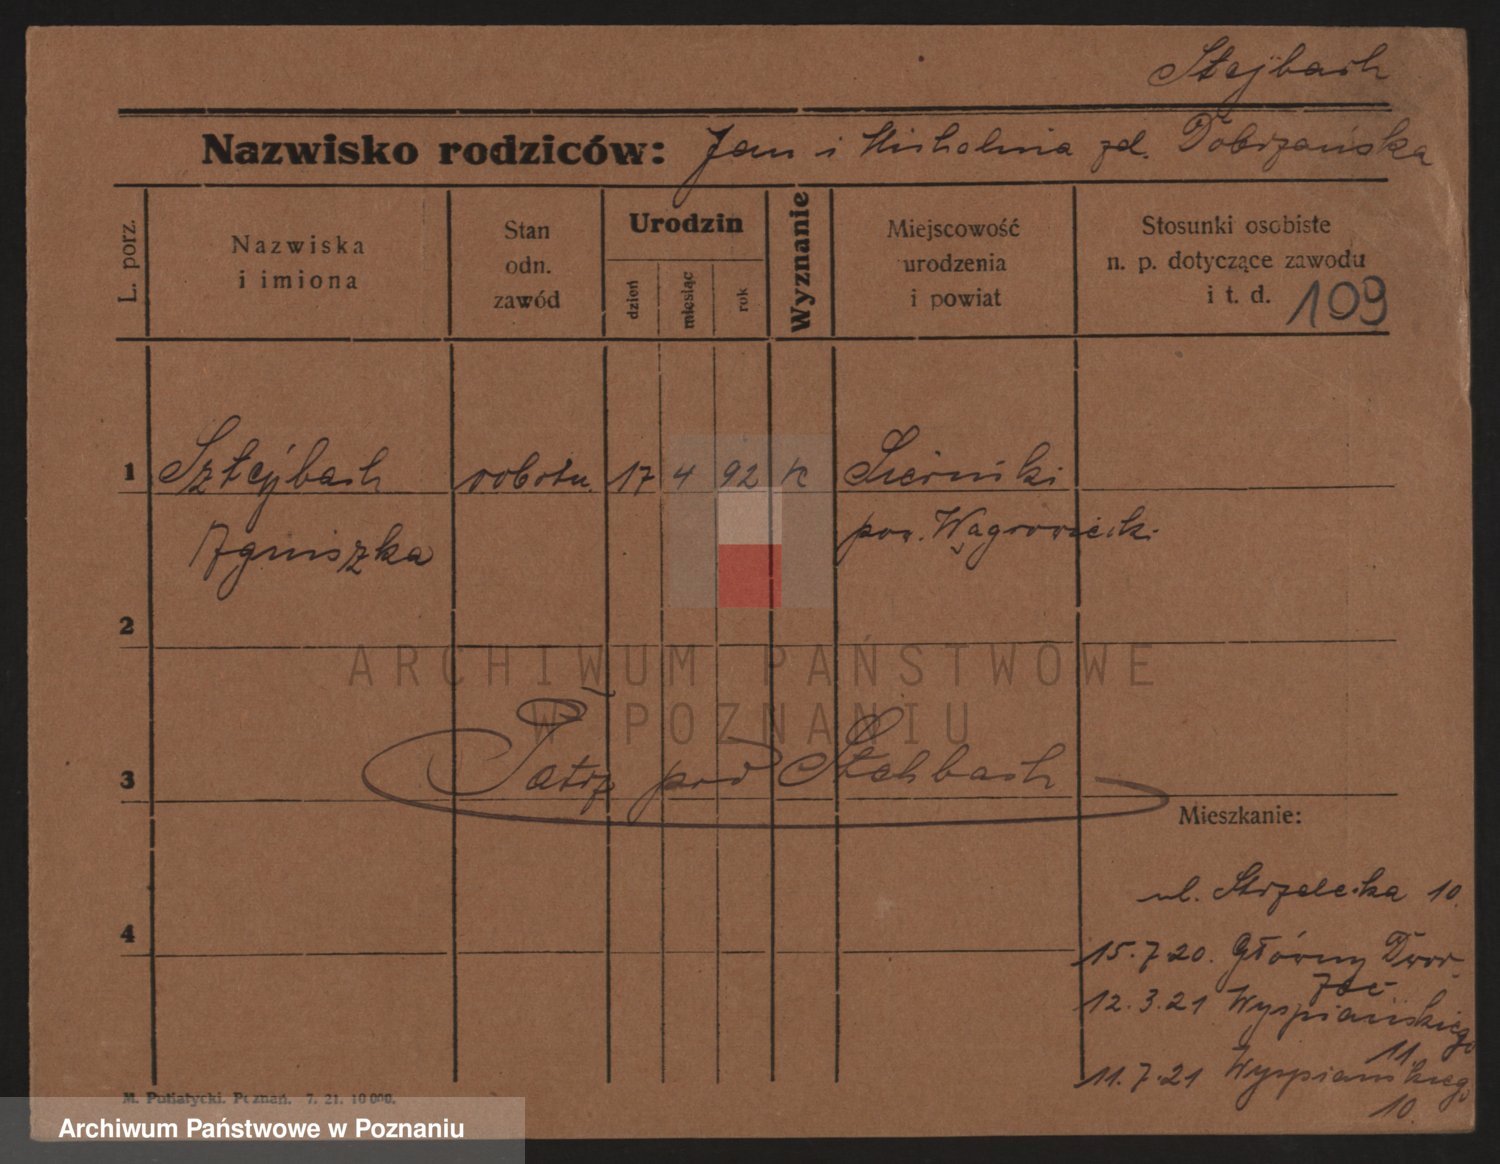 Stejbach
Nazwisko rodziców: Jan i Micholina zd. Dobrzańska
L. porz.
Nazwiska
i imiona
Stan
odn.
zawód
Urodzin
dzień
miesiąc
rok
Wyznanie
Miejscowość
urodzenia
i powiat
Stosunki osobiste
n. p. dotyczące zawodu
i t. d.
109
1 Sztejbach robotn. 17 4 92 K Sierniki
Agniszka pow. Wągrowiecki
2
ARCHIWUM PAŃSTWOWE
W POZNANIU
3 Patrz pod Stahbach
Mieszkanie:
ul. Strzelecka 10.
4
15.7.20. Główny Dwor-
zec
12.3.21 Wyspiańskiego
11.
11.7.21 Wyspiańskiego
10
M. Putiatycki. Poznań. 7. 21. 10 000.
Archiwum Państwowe w Poznaniu